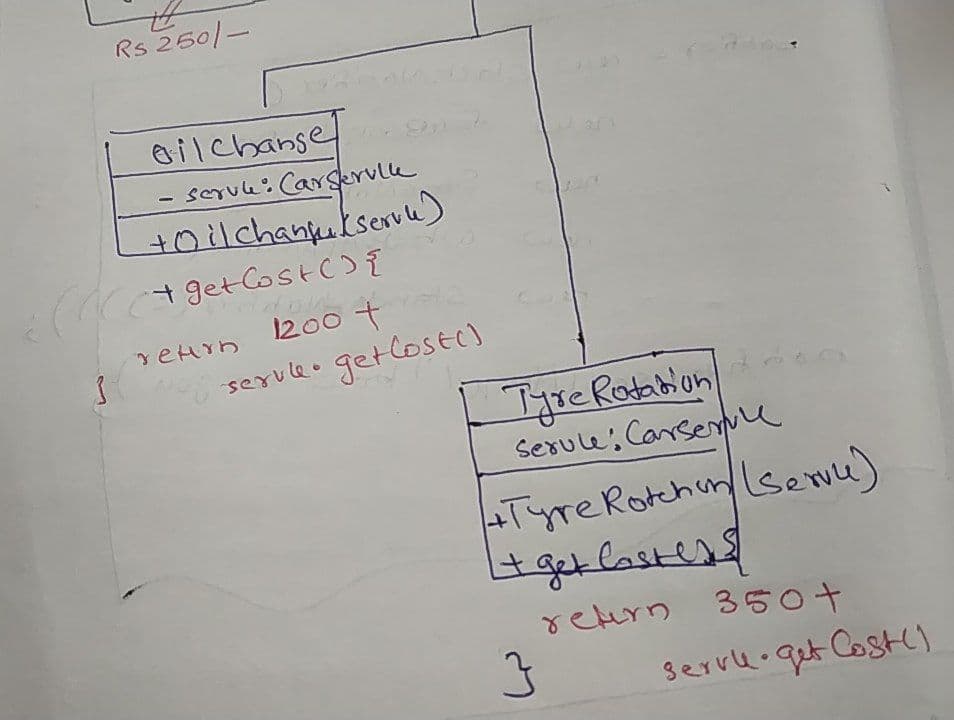 Rs 250/-
OilChange
- service: CarService
+ OilChange(service)
+ getCost() {
return 1200 +
service.getCost()
}
TyreRotation
service: CarService
+TyreRotation(service)
+ getCost() {
return 350 +
service.getCost()
}